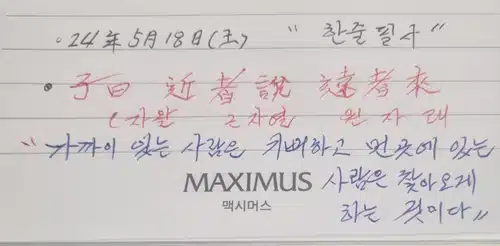 · 24年 5月 18日(土) " 한줄 필구"
· 子曰 近者說 遠者來
(자왈 근자열 원자래
"가까이 있는 사람은 기뻐하고 먼곳에 있는
MAXIMUS 사람은 찾아오게
맥시머스 하는 것이다"